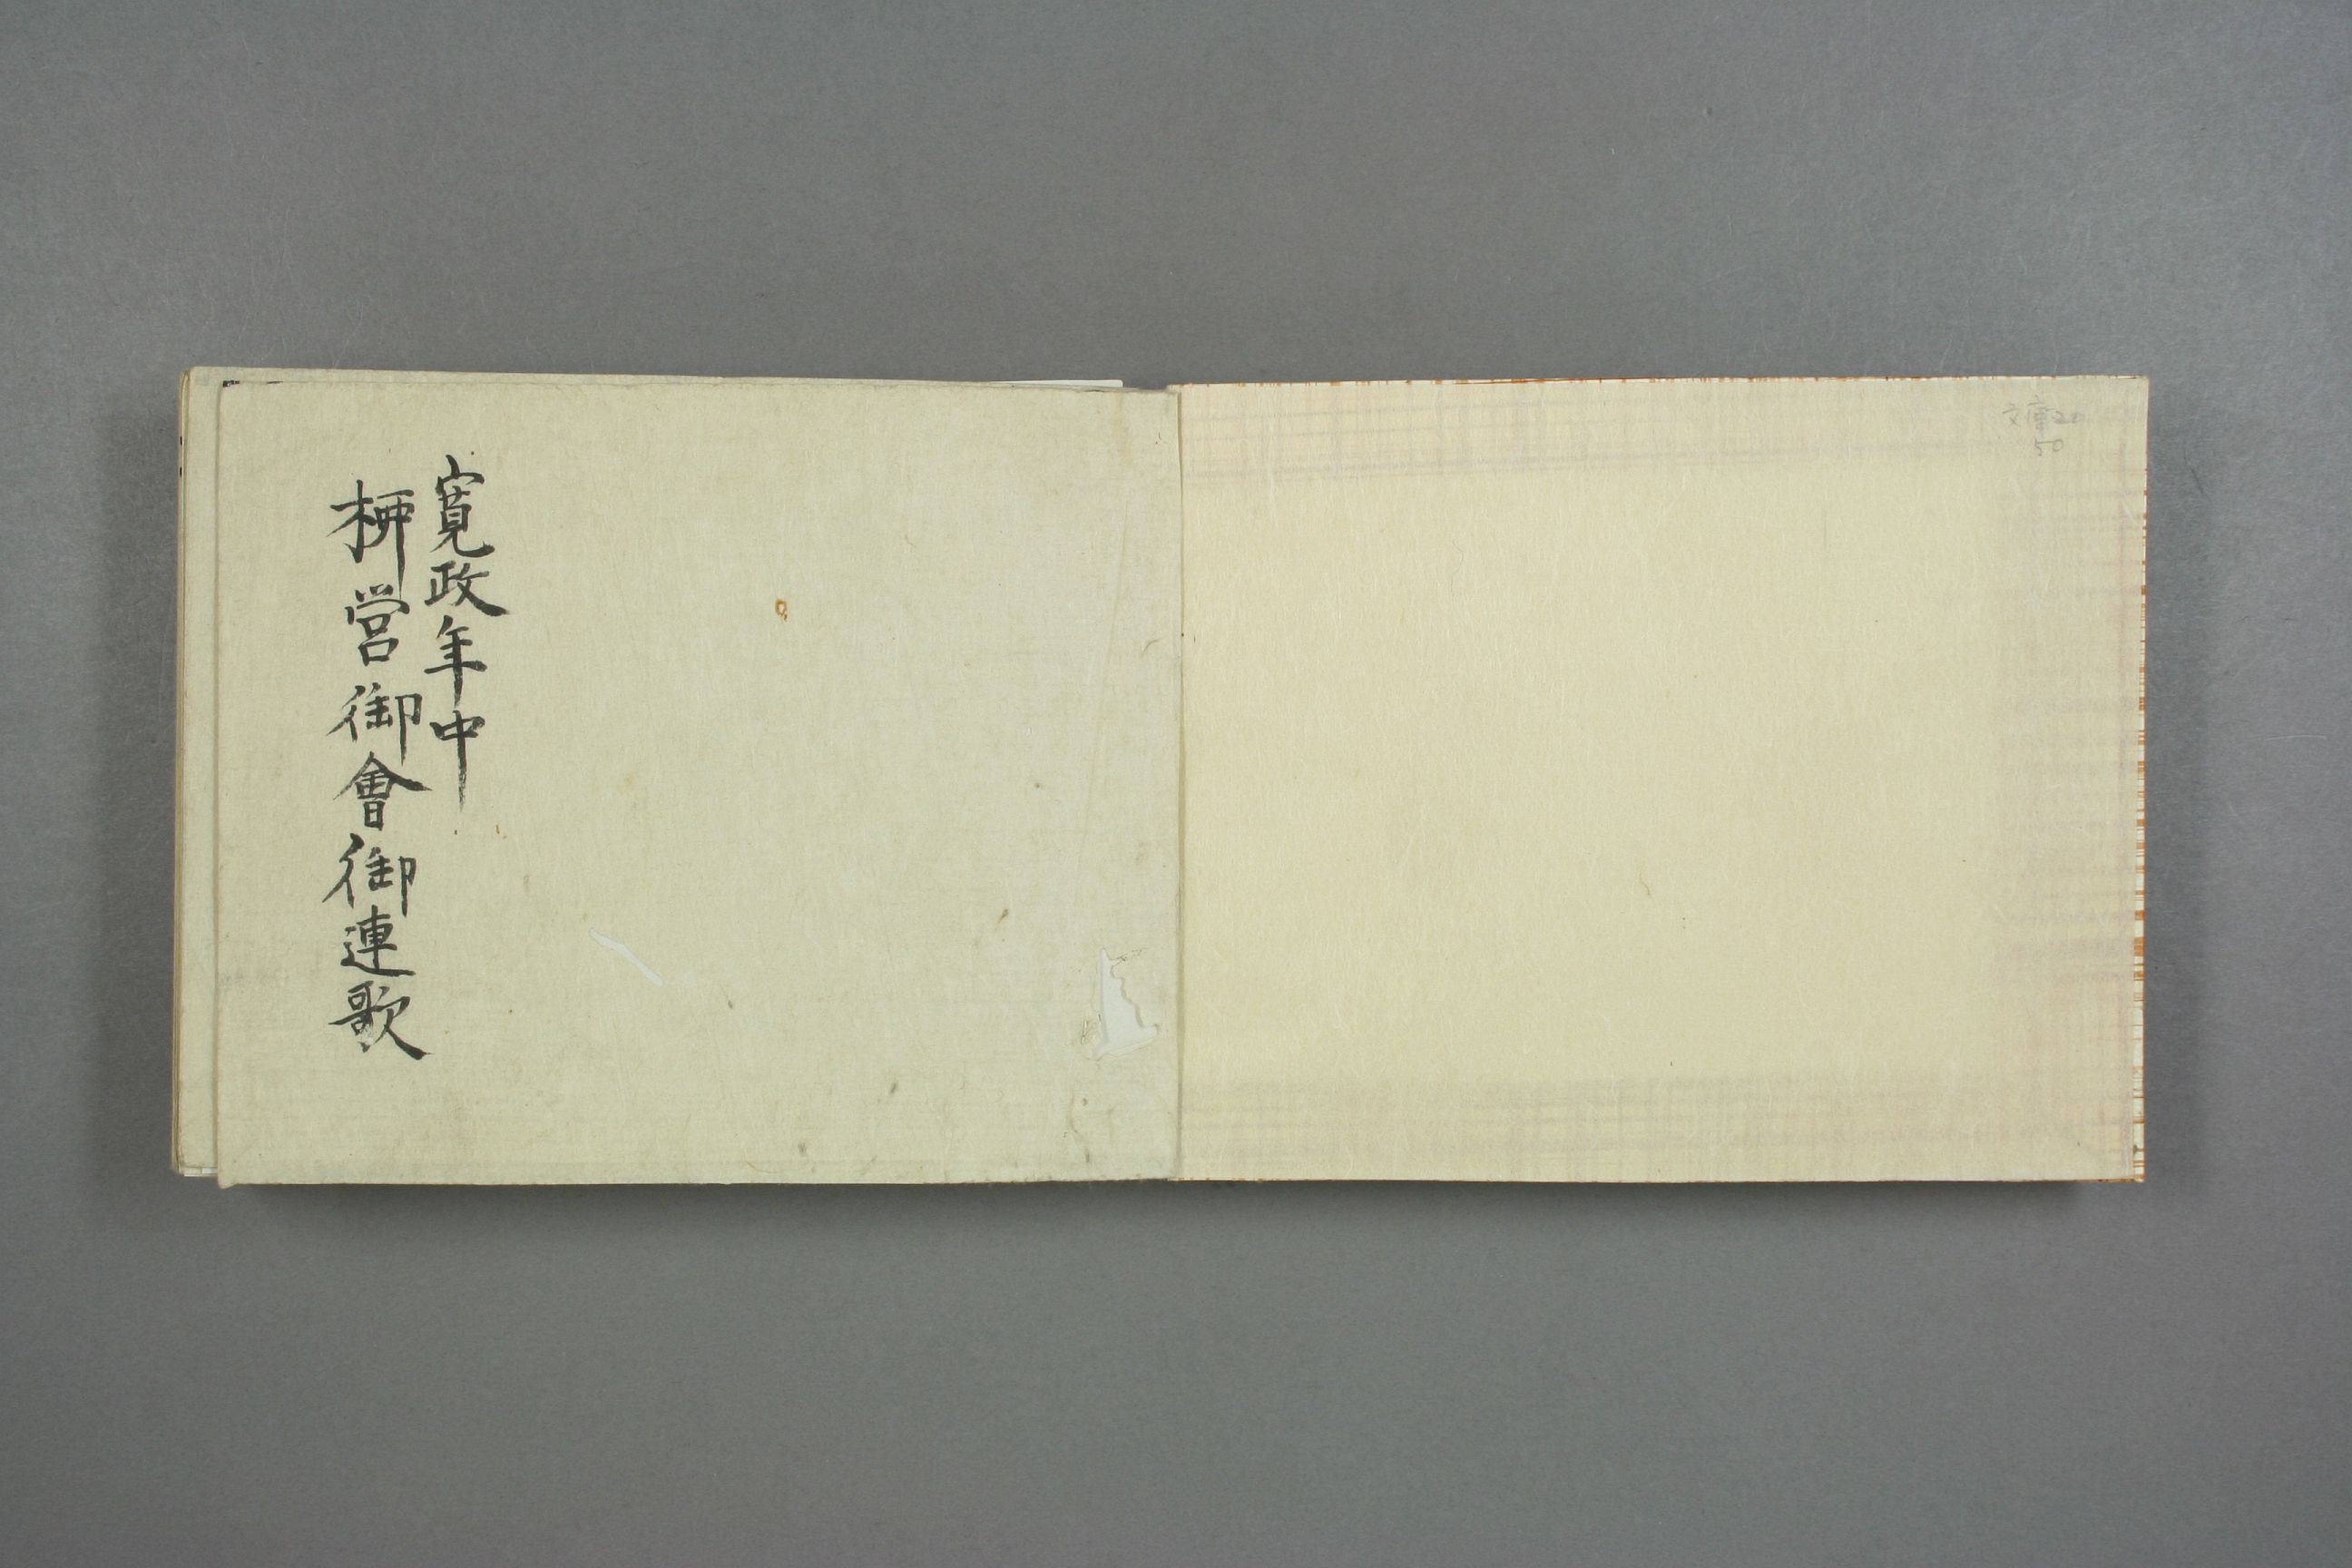 文庫20
50
寛政年中
柳営御會御連歌